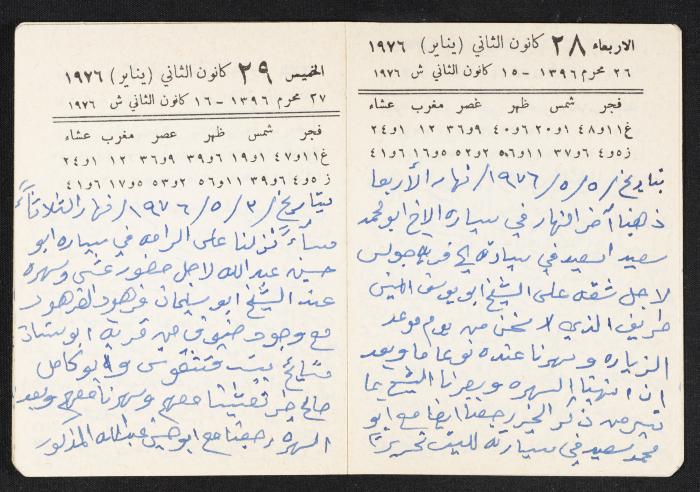 الاربعاء ٢٨ كانون الثاني (يناير) ١٩٧٦
٢٦ محرم ١٣٩٦ - ١٥ كانون الثاني ش ١٩٧٦
فجر شمس ظهر عصر مغرب عشاء
غ ١١و٤٨ ١و٢٠ ٦و٤٠ ٩و٣٦ ١٢ ١و٢٤
ز ٥و٤ ٦و٣٧ ١١و٥٦ ٢و٥٢ ٥و١٦ ٦و٤١
بتاريخ /٥/٥/١٩٧٦/ نهار الأربعا
ذهبنا آخر النهار في سياره الاخ ابو محمد
سعيد اسعيد في سيارته الى قرية جولس
لاجل شقه على الشيخ ابو يوسف امين
طريف الذي لا نخن من يوم موعد
الزياره وسهرنا عنده نوعا ما وبعد
ان انتهينا السهره وبصرنا الشيخ بما
تيسر من ذكر الخير رجعنا ايضا مع ابو
محمد سعيد في سيارته للبيت تحريرًا
الخميس ٢٩ كانون الثاني (يناير) ١٩٧٦
٢٧ محرم ١٣٩٦ - ١٦ كانون الثاني ش ١٩٧٦
فجر شمس ظهر عصر مغرب عشاء
غ ١١و٤٧ ١و١٩ ٦و٣٩ ٩و٣٦ ١٢ ١و٢٤
ز ٥و٤ ٦و٣٩ ١١و٥٦ ٢و٥٣ ٥و١٧ ٦و٤١
بتاريخ /٣/٥/١٩٧٦/ نهار الثلاثاء
مساءً نزلنا على الرامه في سياره ابو
حسين عبد الله لاجل حضور عشى وسهره
عند الشيخ ابو سليمان فرهود الفرهود
مع وجود ضيوف من قرية ابو سنان
مشايخ بيت وابو كامل
صالح خير تعشينا معهم وسهرنا معهم وبعد
السهره رجعنا مع ابو حسين عبد الله المذكور